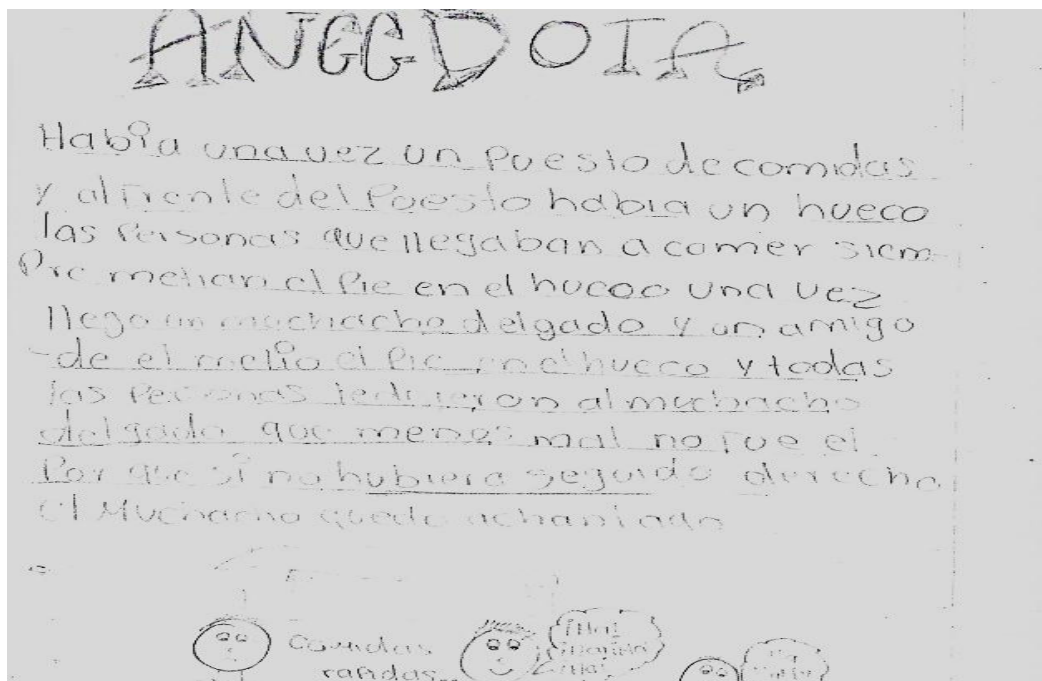 ANECDOTA
Habia una vez un Puesto de comidas
y al frente del Puesto habia un hueco
las Personas que llegaban a comer siem-
Pre metian el Pie en el hueco una vez
llego un muchacho delgado y un amigo
de el metio el Pie en el hueco y todas
las Personas le dijeron al muchacho
delgado que menos mal no fue el
Por que si no hubiera seguido derecho
el Muchacho quedo achantado
Comidas
rapidas